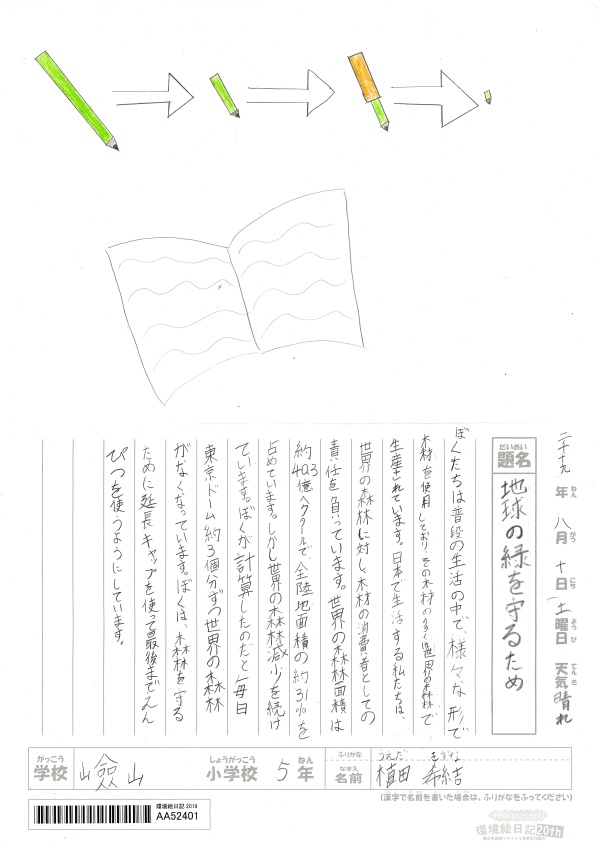 二千十九年 八月 十日 土曜日 天気 晴れ
ねん がつ にち ようび てんき
だいめい
題名
地球の緑を守るため
ぼくたちは普段の生活の中で、様々な形で
木材を使用しており、その木材の多くは世界の森林で
生産されています。日本で生活する私たちは、
世界の森林に対し、木材の消費者としての
責任を負っています。世界の森林面積は
約40.3億ヘクタールで、全陸地面積の約31%を
占めています。しかし世界の森林減少を続け
ています。ぼくが計算したのだと毎日
東京ドーム約3個分ずつ世界の森林
がなくなっています。ぼくは、森林を守る
ために延長キャップを使って最後までえん
ぴつを使うようにしています。
がっこう
学校
山嶮山
しょうがっこう
小学校
5年
ねん
ふりがな
うえだ
なまえ
名前
植田 希結
(漢字で名前を書いた場合は、ふりがなをふってください)
環境絵日記 2019
AA52401
環境絵日記20th